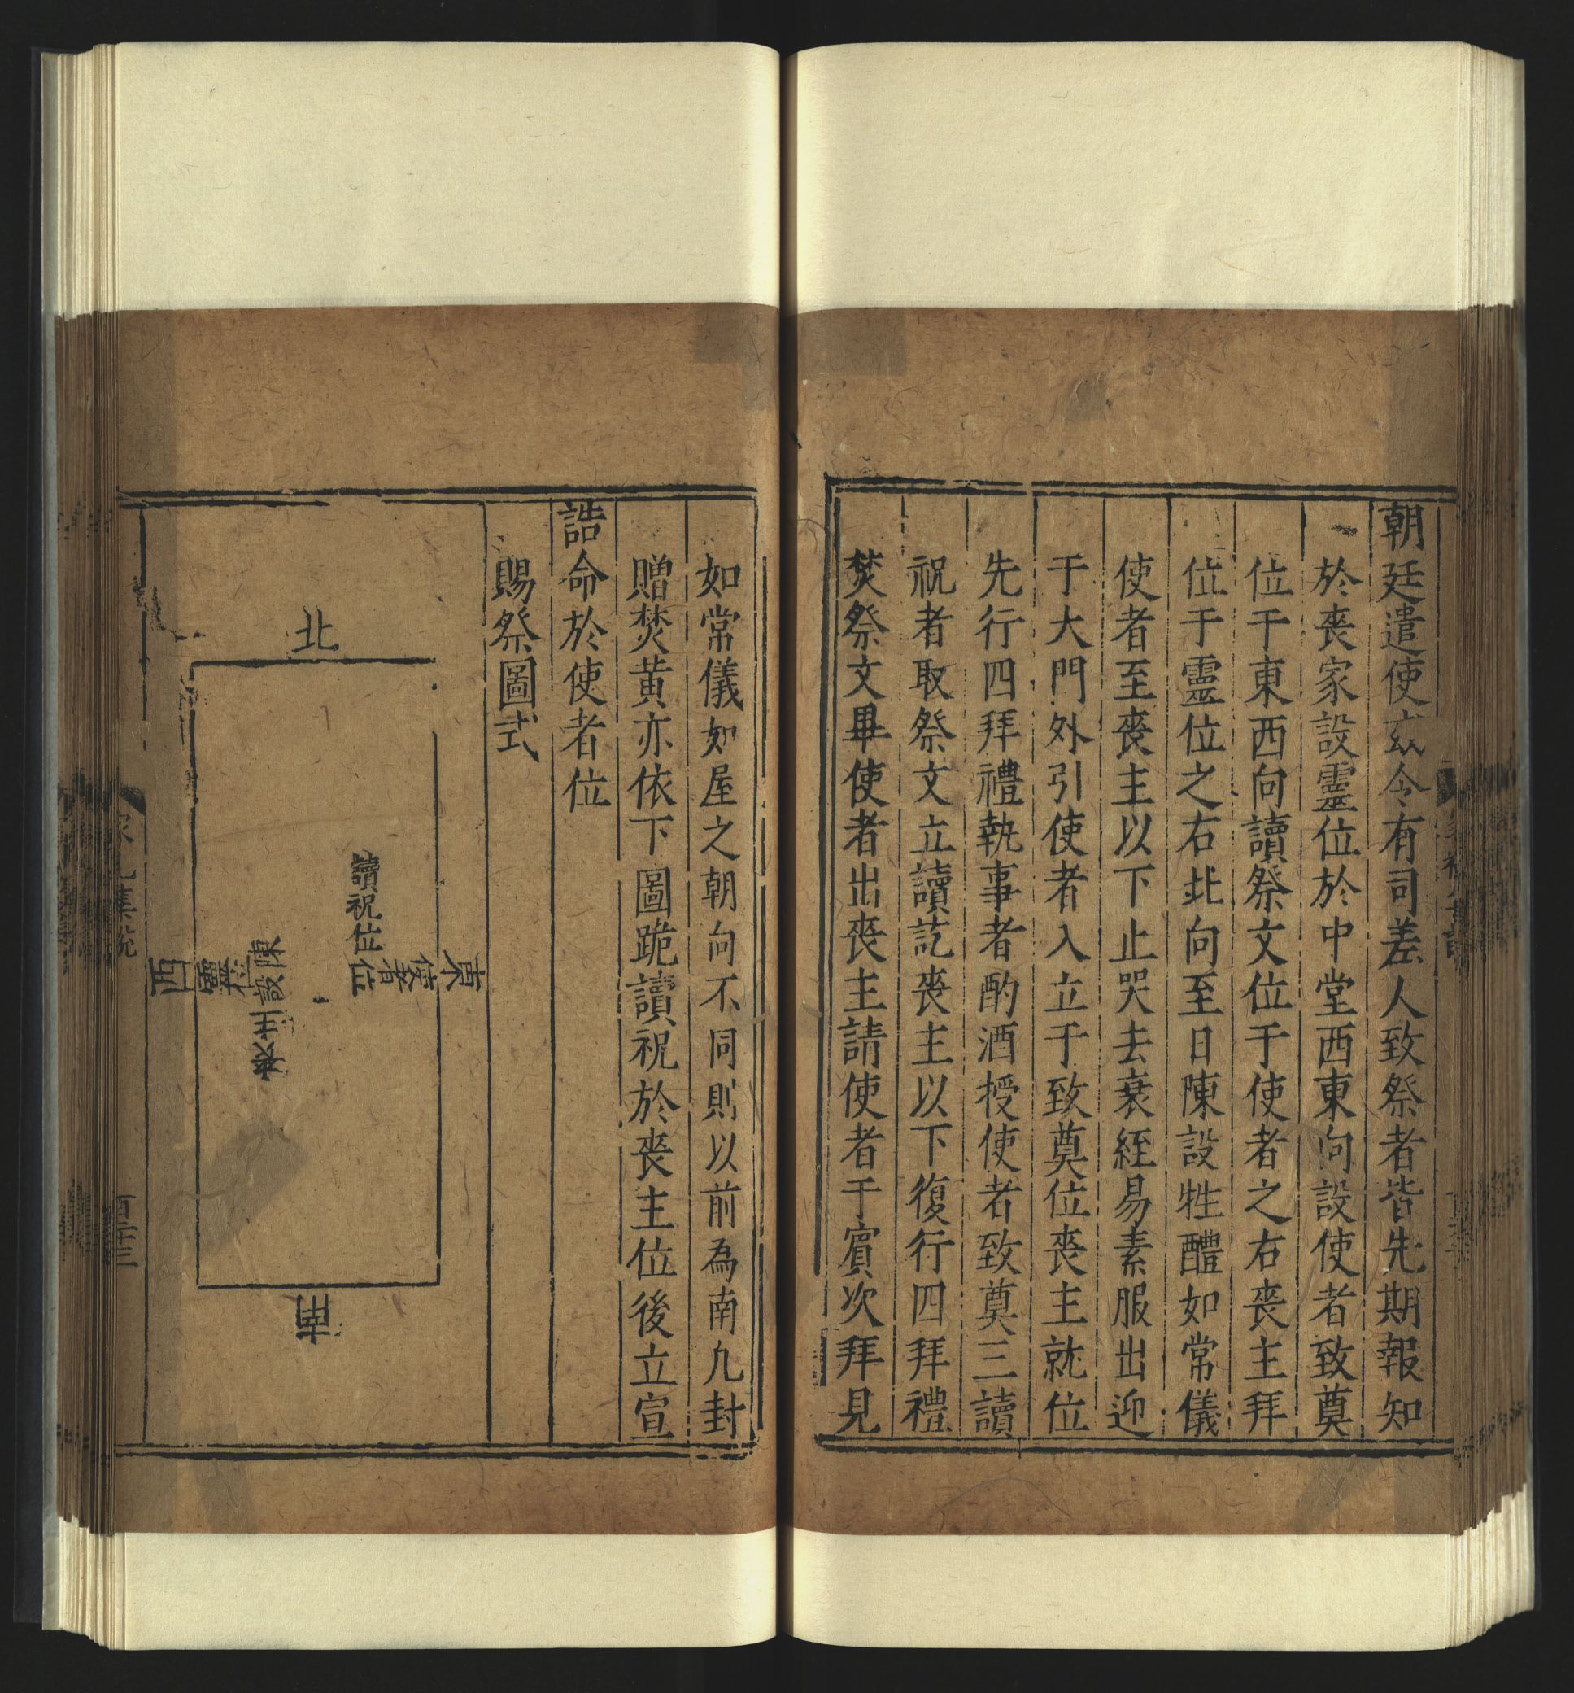 朝廷遣使或令有司差人致祭者皆先期報知
於喪家設靈位於中堂西東向設使者致奠
位于東西向讀祭文位于使者之右喪主拜
位于靈位之右北向至日陳設牲醴如常儀
使者至喪主以下止哭去衰絰易素服出迎
于大門外引使者入立于致奠位喪主就位
先行四拜禮執事者酌酒授使者致奠三讀
祝者取祭文立讀訖喪主以下復行四拜禮
焚祭文畢使者出喪主請使者于賓次拜見
如常儀如屋之朝向不同則以前為南凢封
贈焚黄亦依下圖跪讀祝於喪主位後立宣
誥命於使者位
賜祭圖式
北
東
使者位
讀祝位
陳設
喪主
靈位
西
南
家礼集説